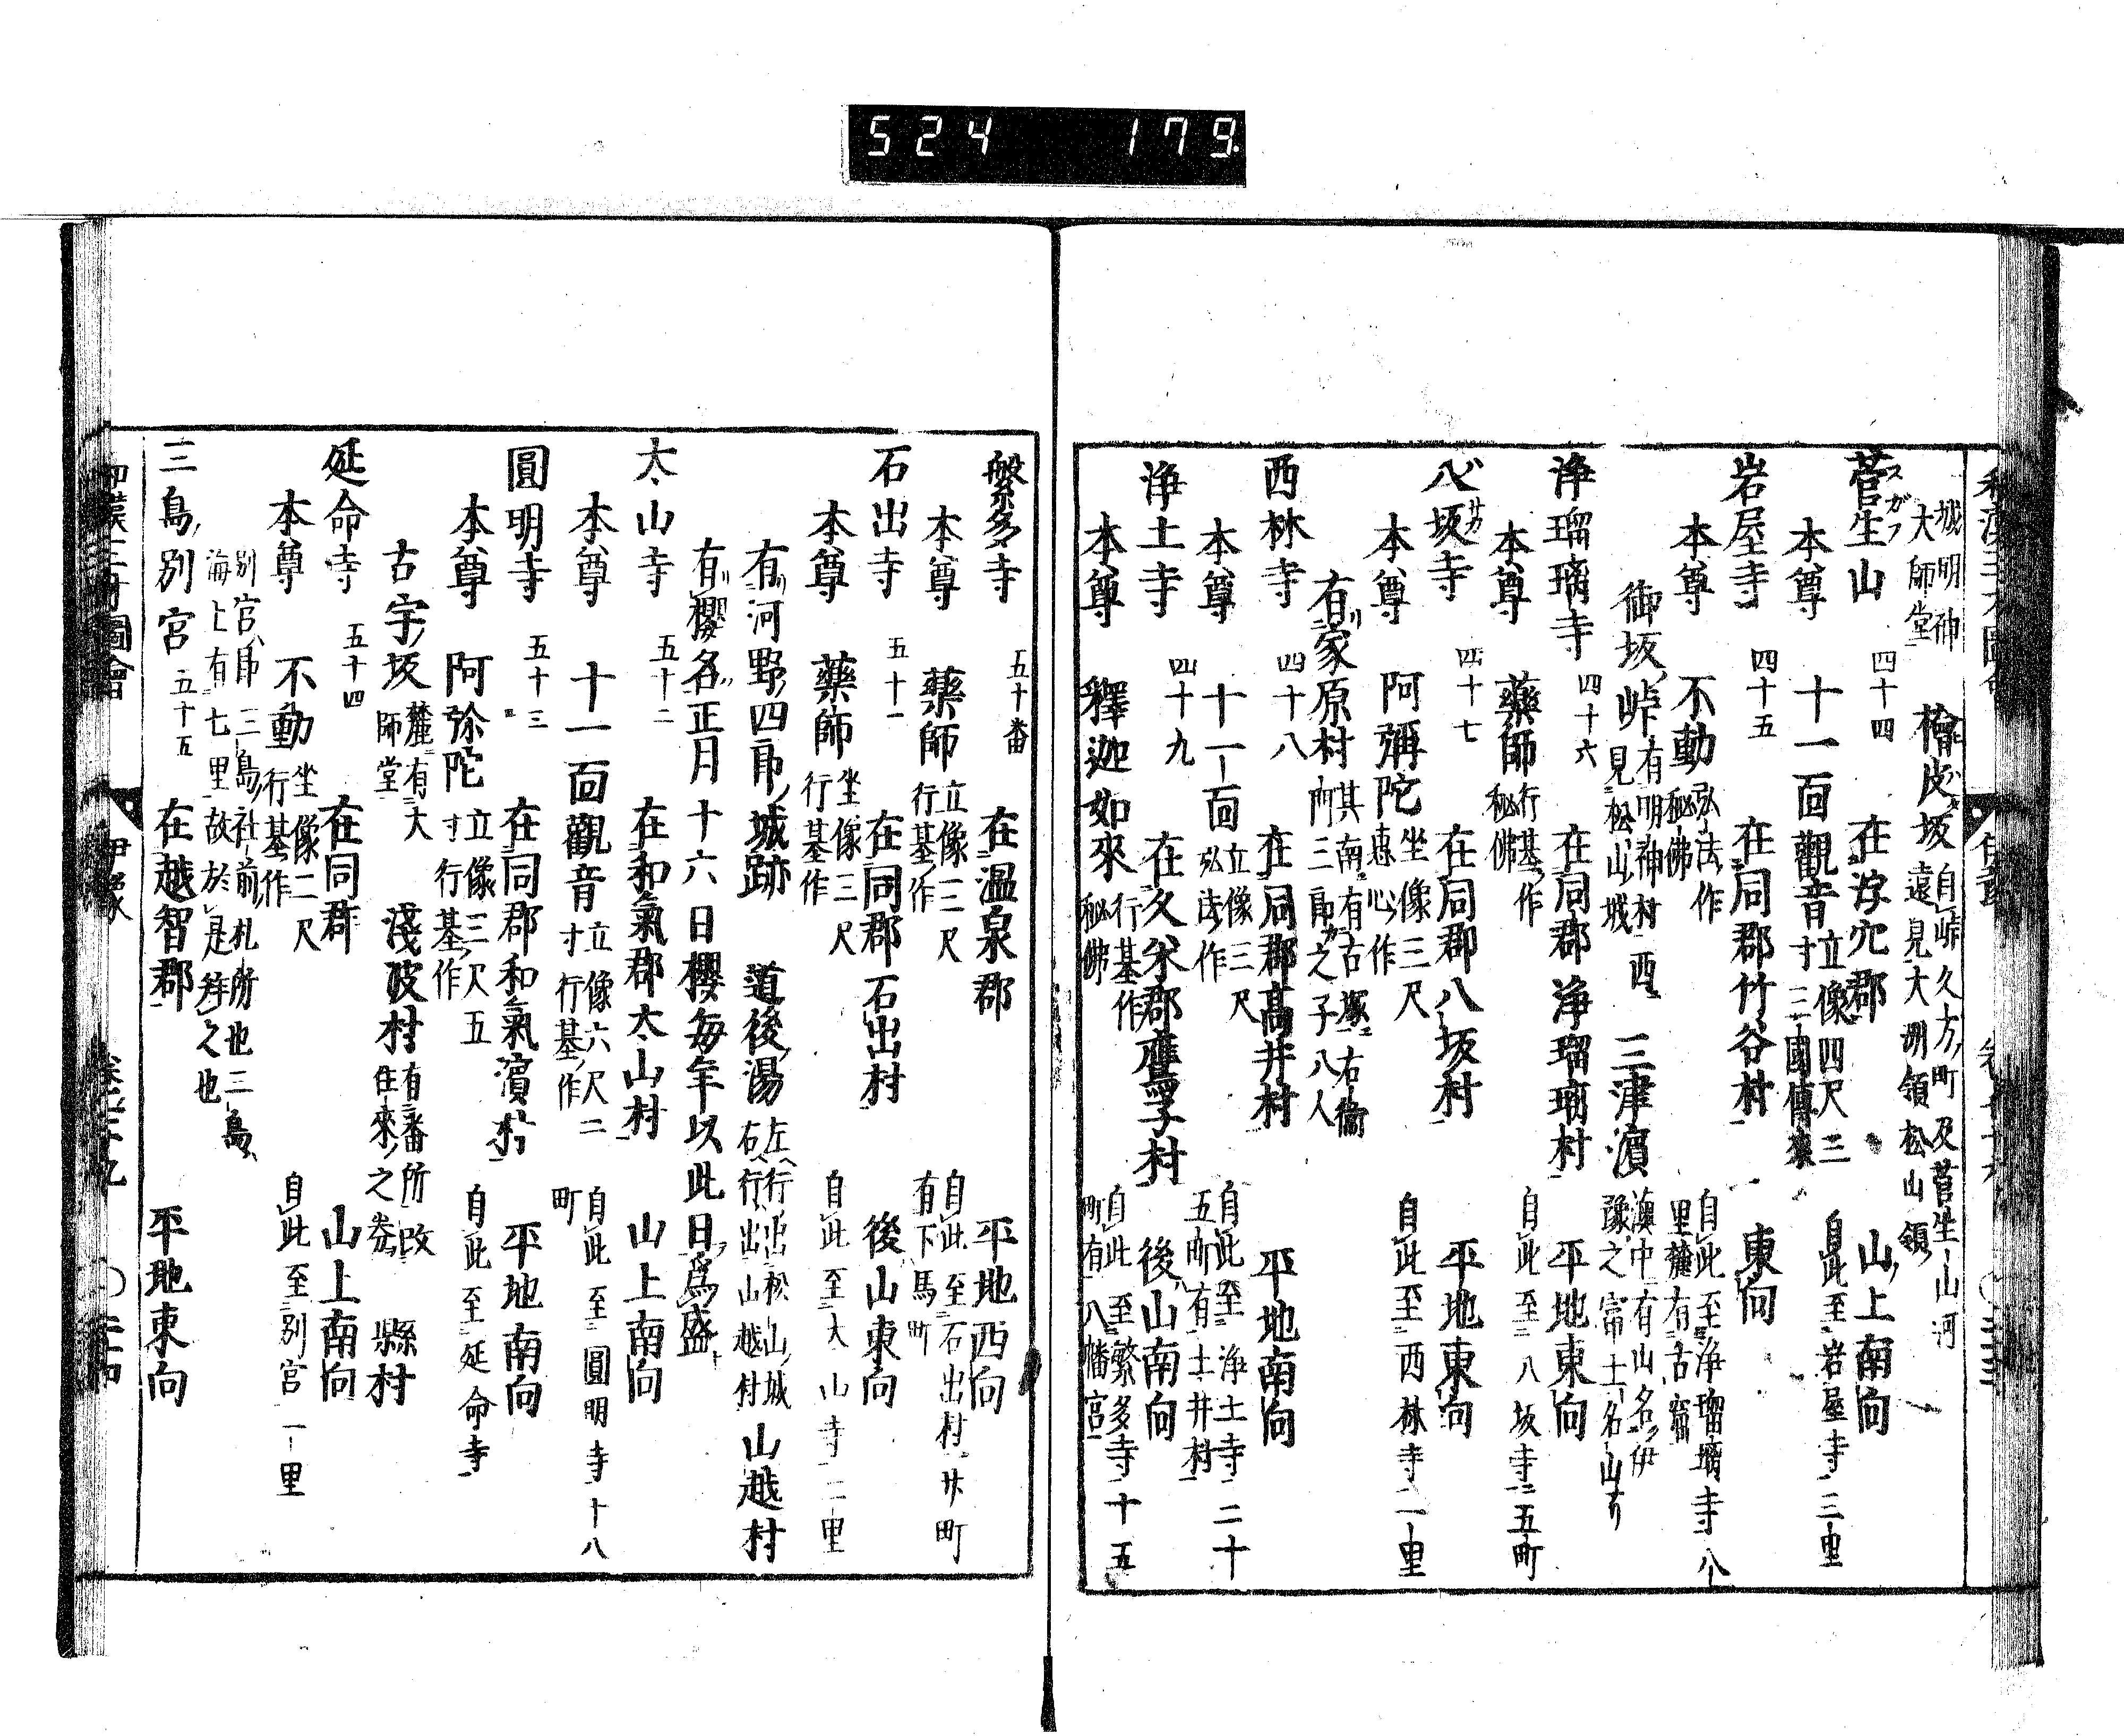 524 179
城明神
大師堂
檜皮坂
自峠久万町及菅生山河
遠見大洲領松山領
菅生山 四十四 在浮穴郡 山上南向
スガフ
本尊 十一面觀音 立像四尺三
寸三國傳來
自此至岩屋寺三里
岩屋寺 四十五 在同郡竹谷村 東向
本尊 不動 弘法作
秘佛
自此至浄瑠璃寺八
里麓有古窟
御坂峠 有明神村西
見松山城
三津濱
濱中有山名伊
豫之富士名山有
浄瑠璃寺 四十六 在同郡浄瑠璃村 平地東向
本尊 藥師 行基作
秘佛
自此至八坂寺五町
八坂寺 四十七 在同郡八坂村 平地東向
サカ
本尊 阿彌陀 坐像三尺
惠心作
自此至西林寺二里
有蒙原村 其南有古塚右衞
門三郎之子八人
西林寺 四十八 在同郡高井村 平地南向
本尊 十一面 立像三尺
弘法作
自此至浄土寺二十
五町有土井村
浄土寺 四十九 在久米郡鷹子村 後山南向
本尊 釋迦如來 行基作
秘佛
自此至繁多寺十五
町有八幡宮
繁多寺 五十番 在温泉郡 平地西向
本尊 藥師 立像三尺
行基作
自此至石出村廿町
有下馬町
石出寺 五十一 在同郡石出村 後山東向
本尊 藥師 坐像三尺
行基作
自此至太山寺二里
有河野四郎城跡 道後湯 左行出松山城
右行出山越村
山越村
有櫻名正月十六日櫻毎年以此日爲盛
太山寺 五十二 在和氣郡太山村 山上南向
本尊 十一面觀音 立像六尺二
寸行基作
自此至圓明寺十八
町
圓明寺 五十三 在同郡和氣濱村 平地南向
本尊 阿弥陀 立像三尺五
寸行基作
自此至延命寺
古宇坂 麓有大
師堂
淺波村 有番所改
往來之券
縣村
延命寺 五十四 在同郡 山上南向
本尊 不動 坐像二尺
行基作
自此至別宮一里
別宮即三島社前札所也三島
海上有七里故於是拜之也
三島別宮 五十五 在越智郡 平地東向
和漢三才圖會 伊豫 卷七十九